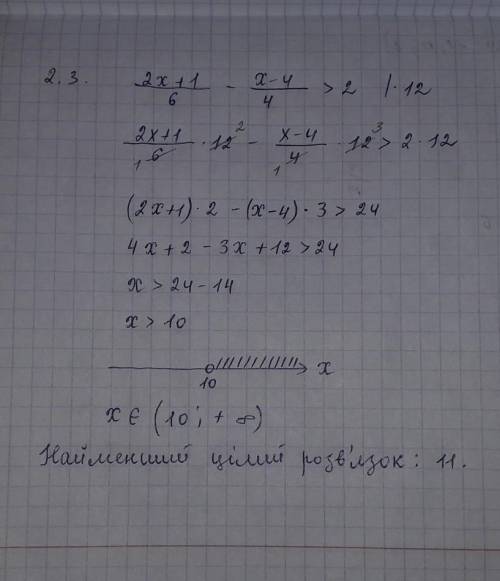 2.3. (2x+1)/6 - (x-4)/4 > 2 /·12
(2x+1)/6 · 12 2 - (x-4)/4 · 12 3 > 2·12
1 1
(2x+1)·2 - (x-4)·3 > 24
4x+2-3x+12>24
x > 24-14
x > 10
10 x
x ∈ (10; + ∞)
Найменший цілий розв'язок: 11.